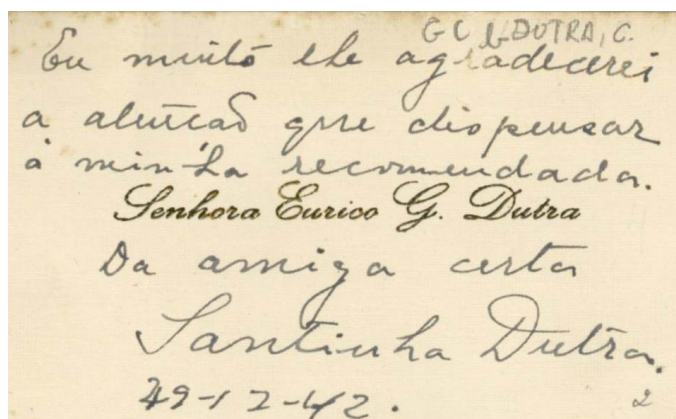 G C DUTRA, C.
Eu muito lhe agradecerei
a atencão que dispensar
à minha recomendada.
Senhora Eurico G. Dutra
Da amiga certa
Santinha Dutra.
29-12-42.
2